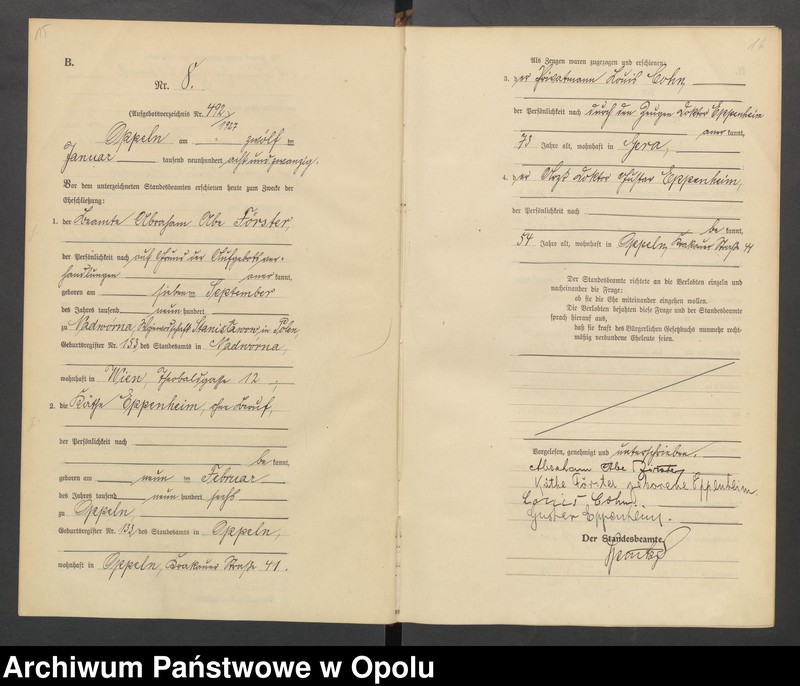 B.
Nr. 8.
(Aufgebotverzeichnis Nr. 492
1927
Oppeln am zwölften
Januar tausend neunhundert achtundzwanzig.
Vor dem unterzeichneten Standesbeamten erschienen heute zum Zwecke der
Eheschließung:
1. der Beamte Abraham Abe Förster,
der Persönlichkeit nach auf Grund der Aufgebotsver-
handlungen anerkannt,
geboren am siebenten September
des Jahres tausend neunhundert
zu Nadworna, Stanislawow, in Polen,
Geburtsregister Nr. 153, des Standesamts in Nadworna,
wohnhaft in Wien, Theobaldgasse 12,
2. die Käthe Eppenheim, ohne Beruf,
der Persönlichkeit nach
bekannt,
geboren am neunten Februar
des Jahres tausend neunhundert sechs
zu Oppeln,
Geburtsregister Nr. 133, des Standesamts in Oppeln,
wohnhaft in Oppeln, Krakauer Straße 41.
Als Zeugen waren zugezogen und erschienen:
3. der Privatmann Louis Cohn,
der Persönlichkeit nach durch den Zeugen Doktor Eppenheim
anerkannt,
73 Jahre alt, wohnhaft in Gera,
4. der Arzt Doktor Gustav Eppenheim,
der Persönlichkeit nach
bekannt,
54 Jahre alt, wohnhaft in Oppeln, Krakauer Straße 41
Der Standesbeamte richtete an die Verlobten einzeln und
nacheinander die Frage:
ob sie die Ehe miteinander eingehen wollen.
Die Verlobten bejahten diese Frage und der Standesbeamte
sprach hierauf aus,
daß sie kraft des Bürgerlichen Gesetzbuchs nunmehr recht-
mäßig verbundene Eheleute seien.
Vorgelesen, genehmigt und unterschrieben.
Abraham Abe Förster
Käthe Förster geborene Eppenheim.
Louis Cohn
Gustav Eppenheim.
Der Standesbeamte.
Archiwum Państwowe w Opolu